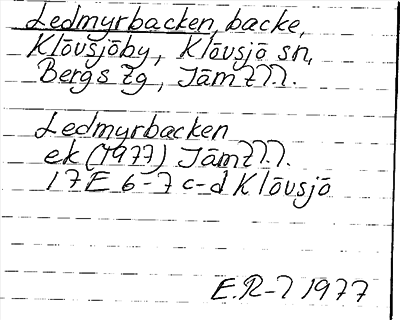 Ledmyrbacken, backe,
Klövsjöby, Klövsjö sn,
Bergs tg, Jämtl.
Ledmyrbacken
ek (1977) Jämtl.
17E 6-7 c-d Klövsjö
E.R-l 1977